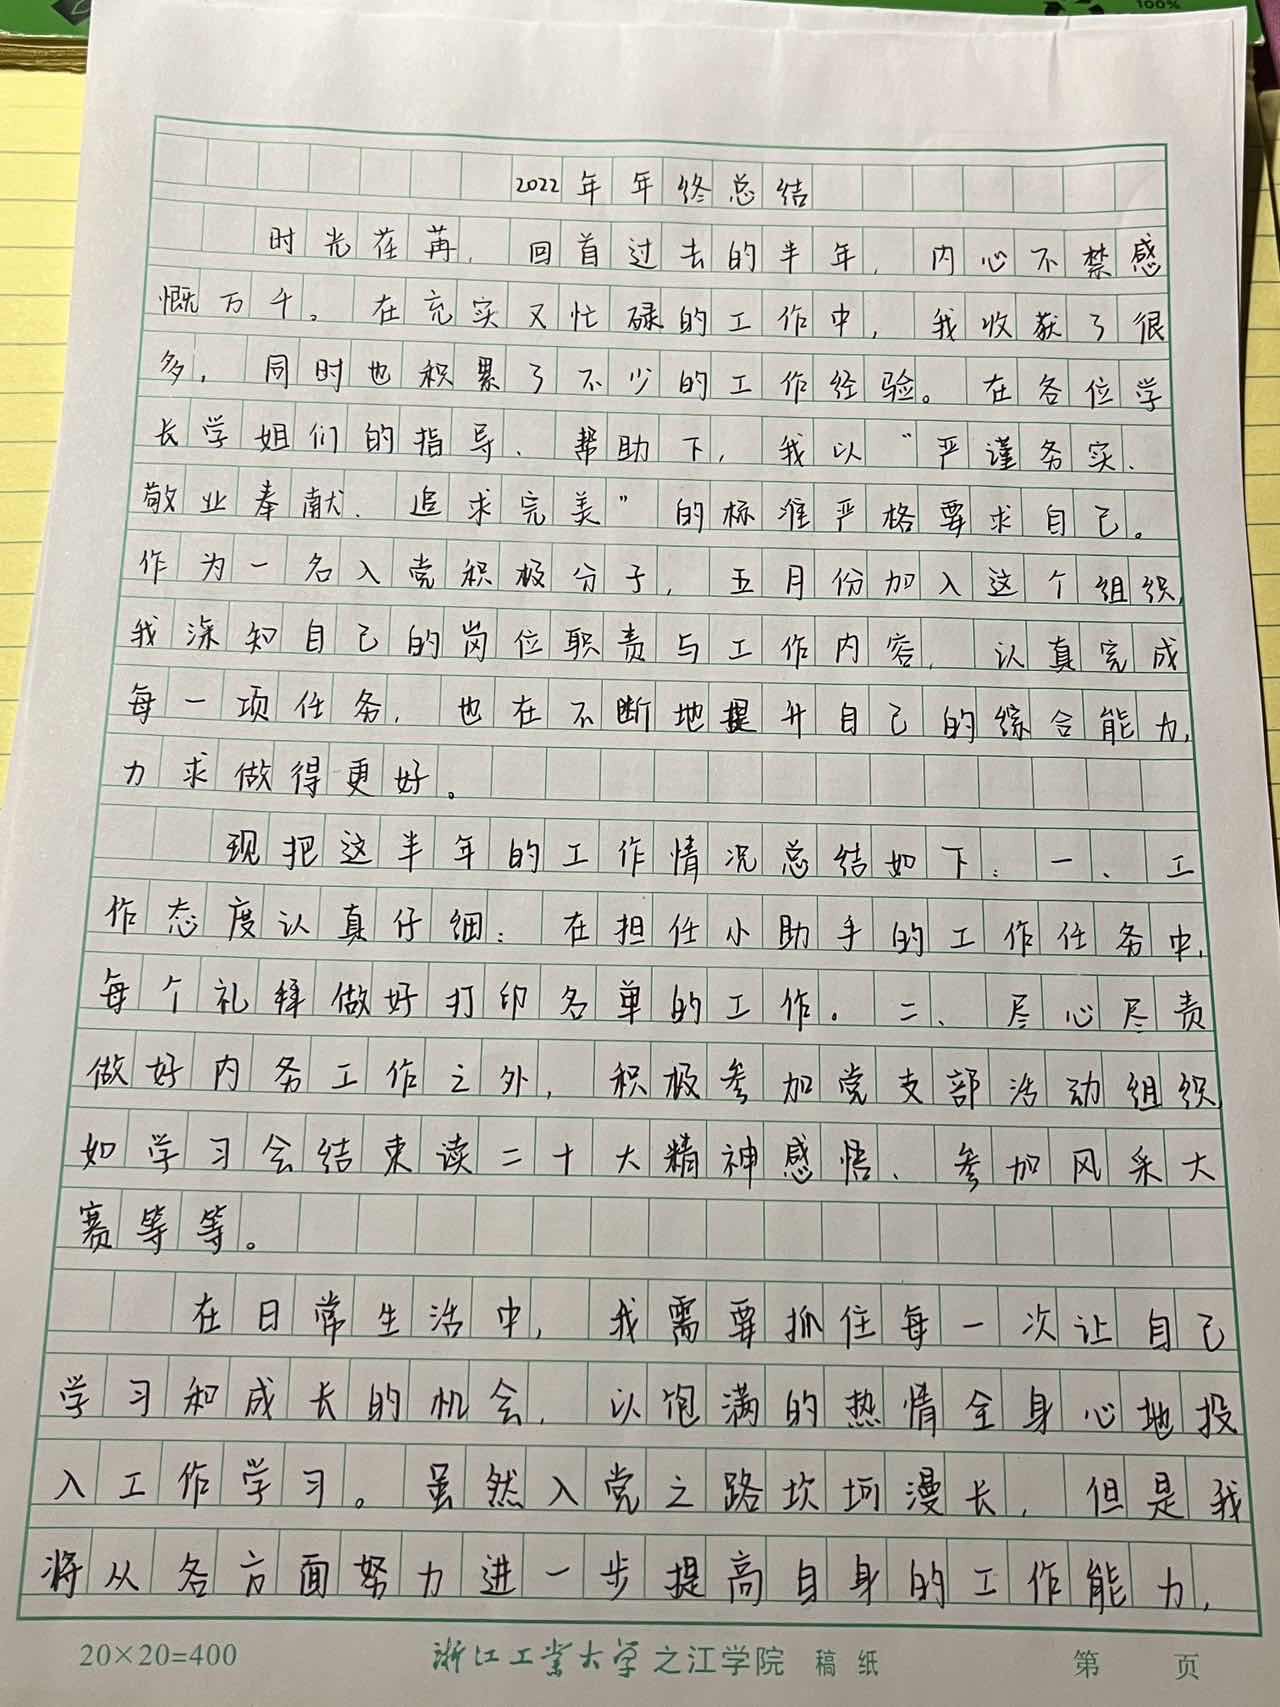 100%
2022年年终总结
时光荏苒，回首过去的半年，内心不禁感
慨万千。在充实又忙碌的工作中，我收获了很
多，同时也积累了不少的工作经验。在各位学
长学姐们的指导、帮助下，我以“严谨务实、
敬业奉献、追求完美”的标准严格要求自己。
作为一名入党积极分子，五月份加入这个组织，
我深知自己的岗位职责与工作内容，认真完成
每一项任务，也在不断地提升自己的综合能力，
力求做得更好。
现把这半年的工作情况总结如下：一、工
作态度认真仔细：在担任小助手的工作任务中，
每个礼拜做好打印名单的工作。二、尽心尽责
做好内务工作之外，积极参加党支部活动组织
如学习会结束读二十大精神感悟、参加风采大
赛等等。
在日常生活中，我需要抓住每一次让自己
学习和成长的机会，以饱满的热情全身心地投
入工作学习。虽然入党之路坎坷漫长，但是我
将从各方面努力进一步提高自身的工作能力，
20×20=400 浙江工业大学之江学院 稿纸 第 页